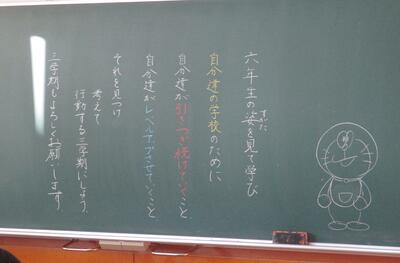 六年生の姿を見て学び
すがた
自分達の学校のために
自分達が引きつぎ続けていくこと
自分達がレベルアップさせていくこと
それを見つけ
考えて
行動する三学期にしよう。
三学期もよろしくお願いします。